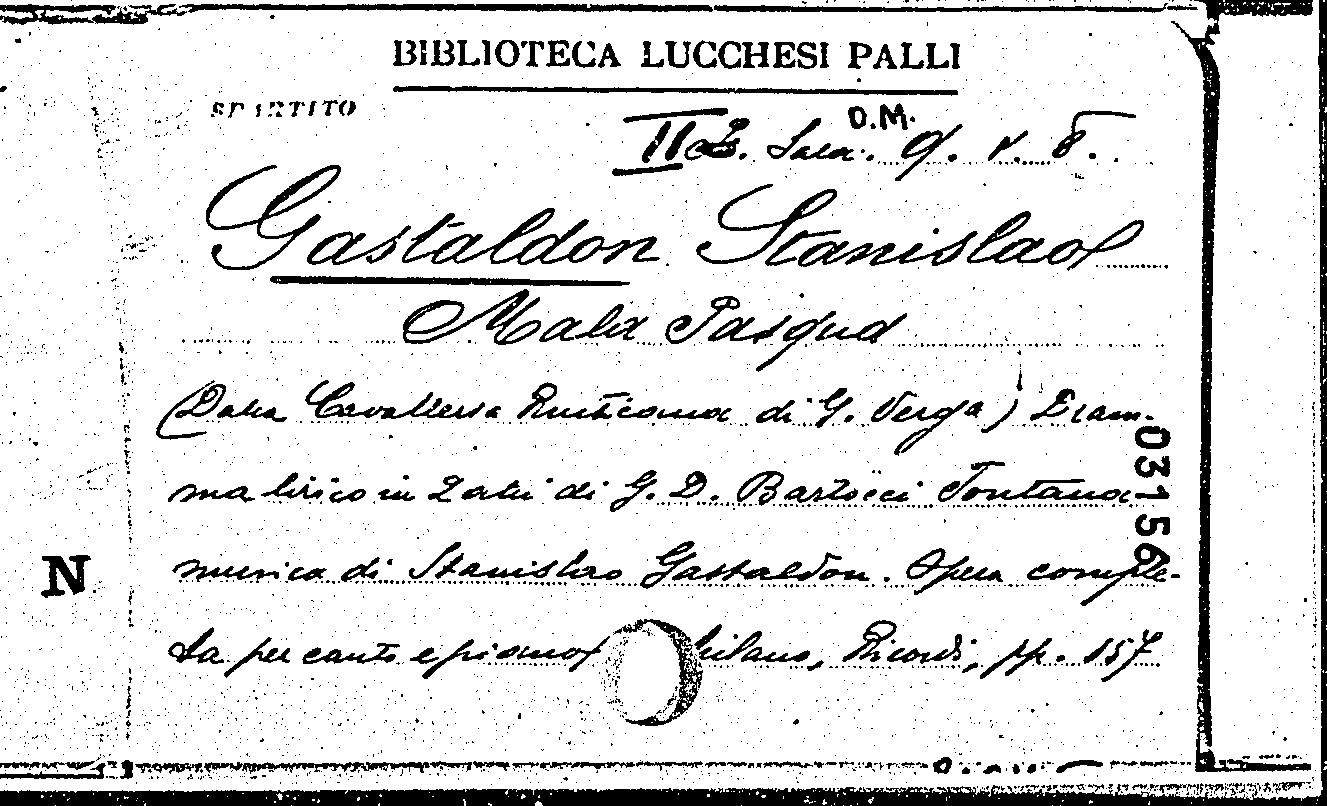 BIBLIOTECA LUCCHESI PALLI
SPARTITO
O.M.
II Sala. V. 8.
Gastaldon Stanislao
Mala Pasqua
(Dalla Cavalleria Rusticana di G. Verga) Dram-
ma lirico in 2 atti di G. D. Bartocci Fontana
musica di Stanislao Gastaldon. Opera comple-
ta per canto e piano Milano, Ricordi, pp. 157
03156
N